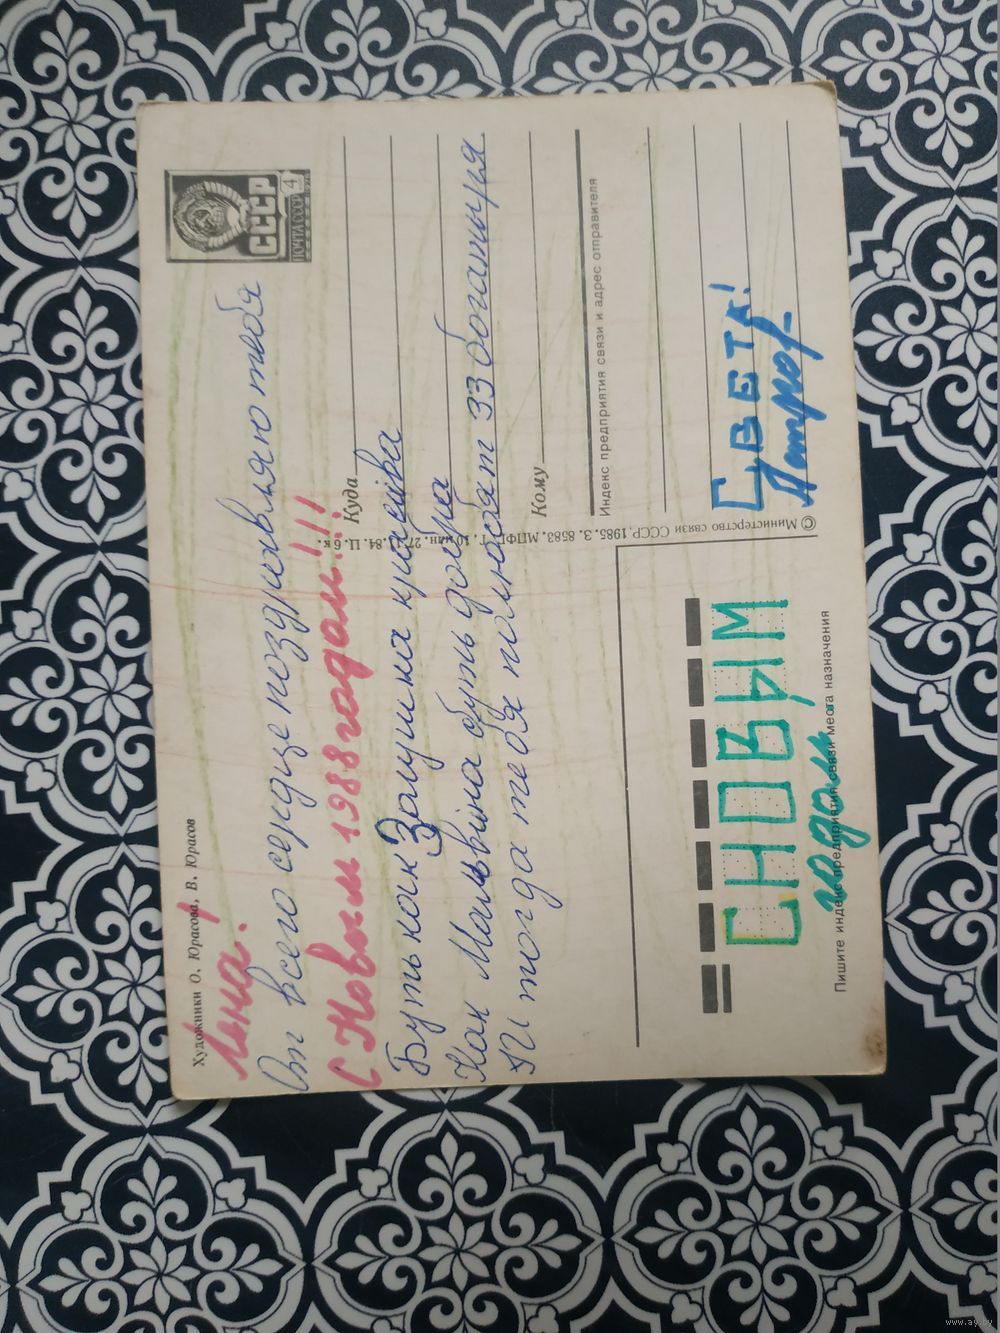 Художники О. Юрасова, В. Юрасов
ПОЧТА СССР 4
СССР
Лена!
От всего сердце поздравляю тебя
С Новым 1988 годом!!!
Буть как Золушка красіва
Как Мальвіна буть добра
И тогда тебя полюбят 33 богатиря
Куда
Кому
Индекс предприятия связи и адрес отправителя
© Министерство связи СССР, 1985. З. 8583. МПФГ. Т. 10 млн. 27.11.84. Ц. 6 к.
СВЕТА!
СНОВЫМ
годом
Пишите индекс предприятия связи места назначения
www.ay.by